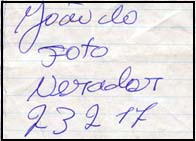 João do
Foto
Neradat
23217